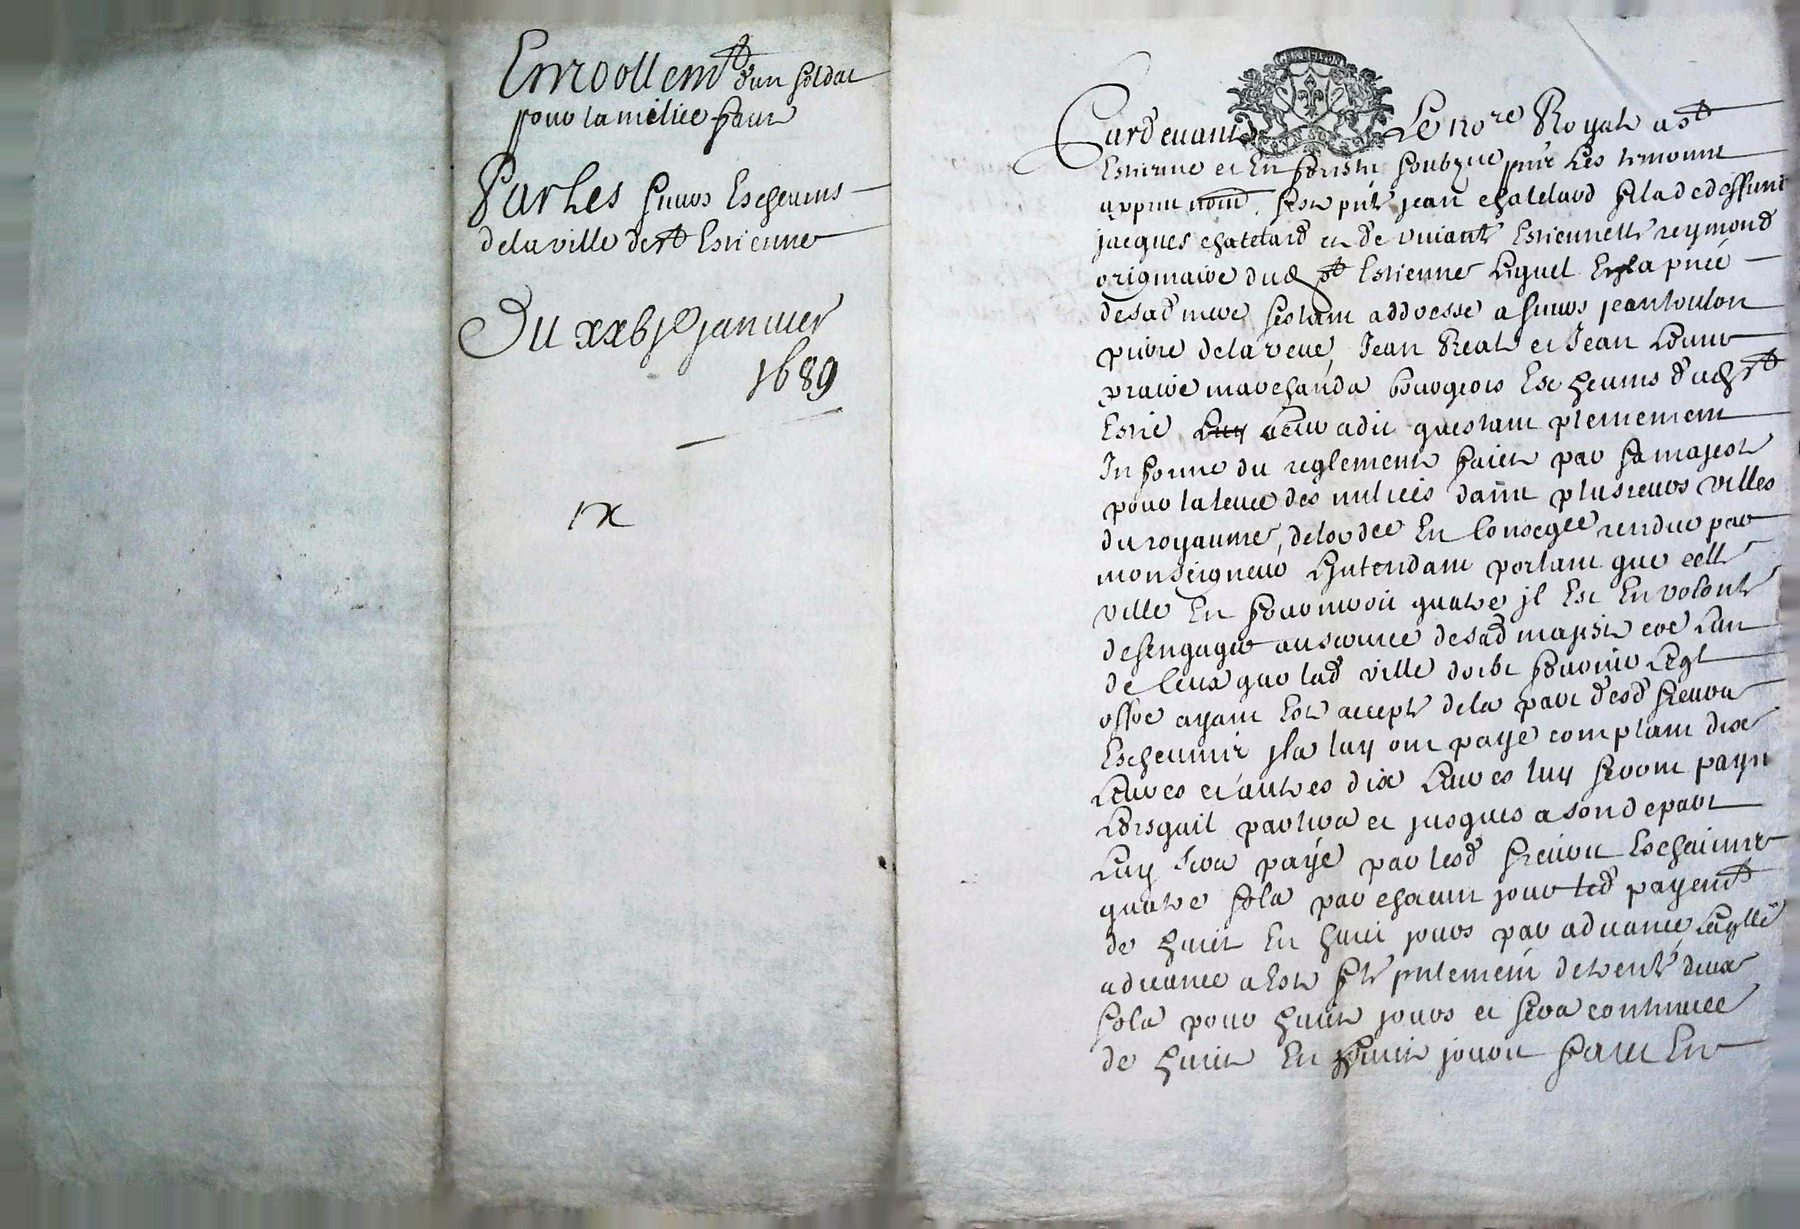 Enroollemt d'un soldat
pour la milice faict
Par Les sieurs Eschevins
de la ville de st Estienne
Du xxbje janvier
1689
IX
GEN DE LYON
Pardevant Le nore Royal a st
Estienne et En forestz soubzne pnts Les tesmoins
appres nom. s'est pnte jean chatelard fils a de deffunt
jacques chatelard et de vivante Estiennette reymond
originaire dud st Estienne Lequel En la pnce
de sad mere s'estant addresse a sieurs jean
de la veue, Jean Real et Jean
praire marchands bourgeois Eschevins dud st
Estie Leur a dit qu'estant pleinement
Informe du reglement faict par sa majeste
pour la levee des milices dans plusieurs villes
du royaume, de lordce En consequce rendue par
monseigneur Lintendant portant que cette
ville En fourniroit quatre il Est En volonte
de sengager au service de sad majeste coe Lun
de Ceux que lad ville doibt fournir Leql
offre ayant Este accepte de la part desd sieurs
Eschevins ils luy ont paye comptant dix
Livres et autres dix Livres luy seront payes
Lorsquil partira et jusques a son depart
Luy sera paye par lesd sieurs Eschevins
quatre sols par chacun jour led payemt
de huict En huict jours par advance Laqlle
advance a Este fte pntement de trente deux
sols pour huict jours et sera continuee
de huict En huict jours faict En